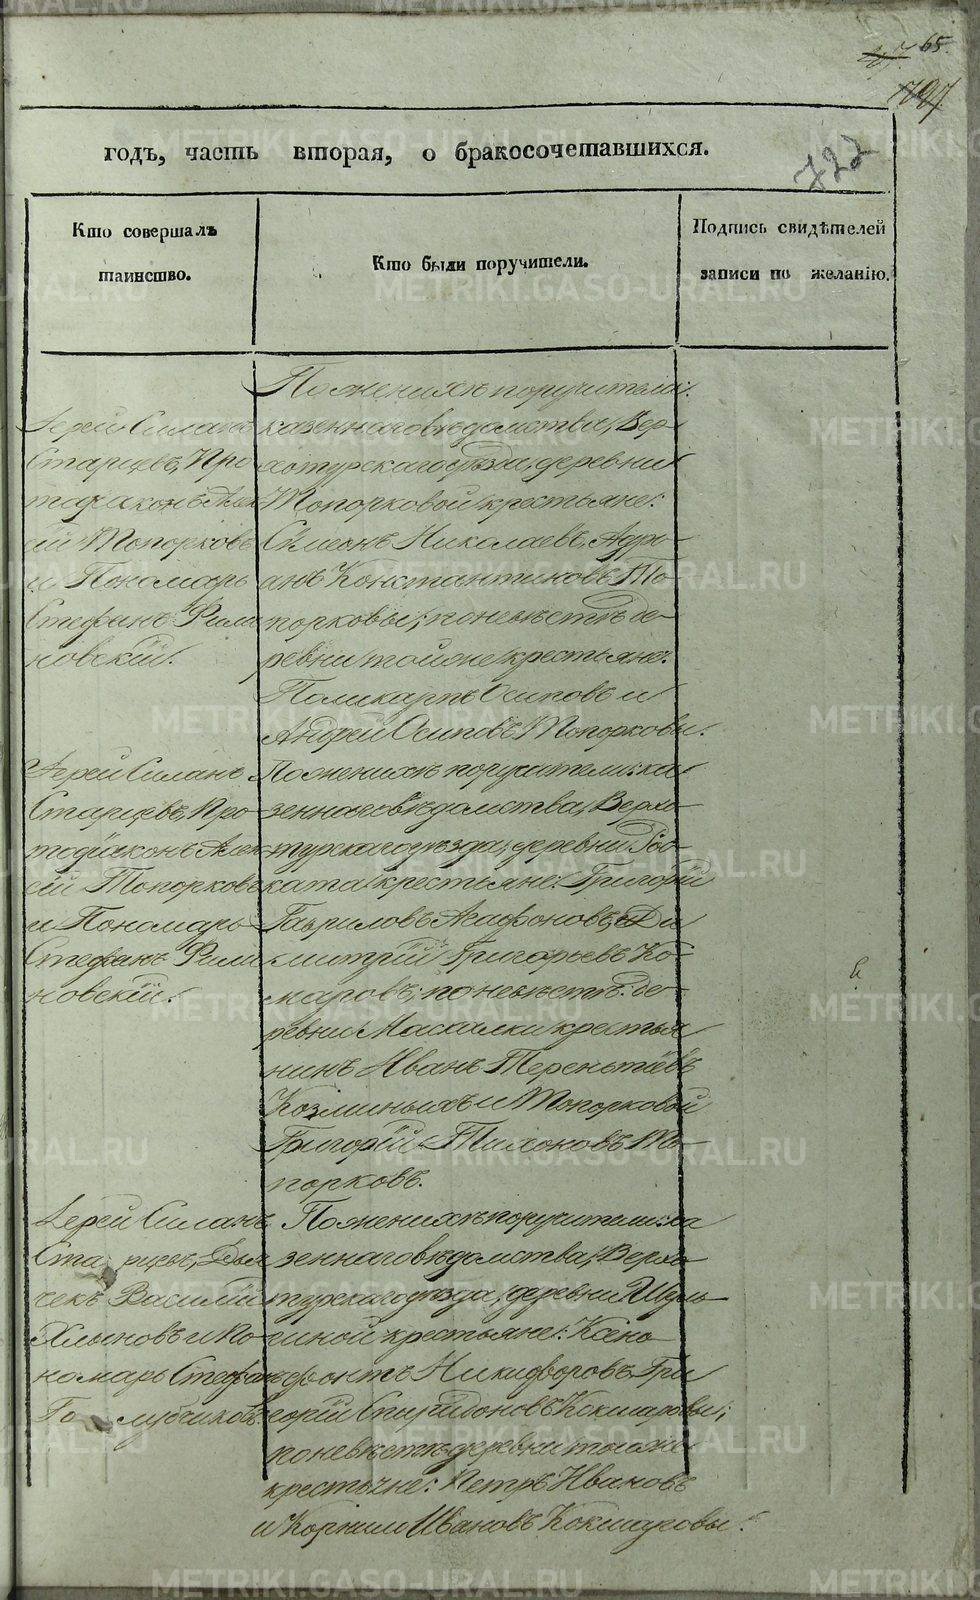 65.
годъ, часть вторая, о бракосочетавшихся.
722
Кто совершалъ
таинство.
Кто были поручители.
Подпись свидѣтелей
записи по желанію.
Іерей Силанъ
Старцевъ, Про
тодіаконъ Алек
сій Топорковъ
и Пономарь
Стефанъ Фили
новскій.
По женихѣ поручители:
казеннаго вѣдомства, Вер-
хотурскаго уѣзда, деревни
Топорковой крестьяне:
Сѵмеонъ Николаевъ, Адрі-
анъ Константиновъ То-
порковы; по невѣстѣ де-
ревни тойже крестьяне:
Поликарпъ Осиповъ и
Андрей Осиповъ Топорковы.
Іерей Силанъ
Старцевъ, Про-
тодіаконъ Алек
сій Топорковъ
и Пономарь
Стефанъ Фили
новскій.
По женихѣ поручители: ка
зеннаго вѣдомства, Верхо-
турскаго уѣзда, деревни
ката крестьяне: Григорій
Гавриловъ Агафоновъ, Ди
митрій Григорьевъ Ко-
маровъ; по невѣстѣ: де-
ревни Масалки крестья
нинъ Иванъ Терентіевъ
Козминыхъ и Топорковой
Григорій Тихоновъ То-
порковъ.
Іерей Силанъ
Старцевъ, Дья
чекъ Василій
Хлыновъ и По-
номарь Стефанъ
Голубчиковъ
По женихѣ поручители: ка
зеннаго вѣдомства, Верхо
турскаго уѣзда, деревни Шуль-
гиной крестьяне: Ксено
фонтъ Никифоровъ, Гри
горій Спиридоновъ Кокшаровы;
по невѣстѣ деревни тойже
крестьяне: Петръ Ивановъ
и Корнилъ Ивановъ Кокшаровы.
METRIKI.GASO-URAL.RU